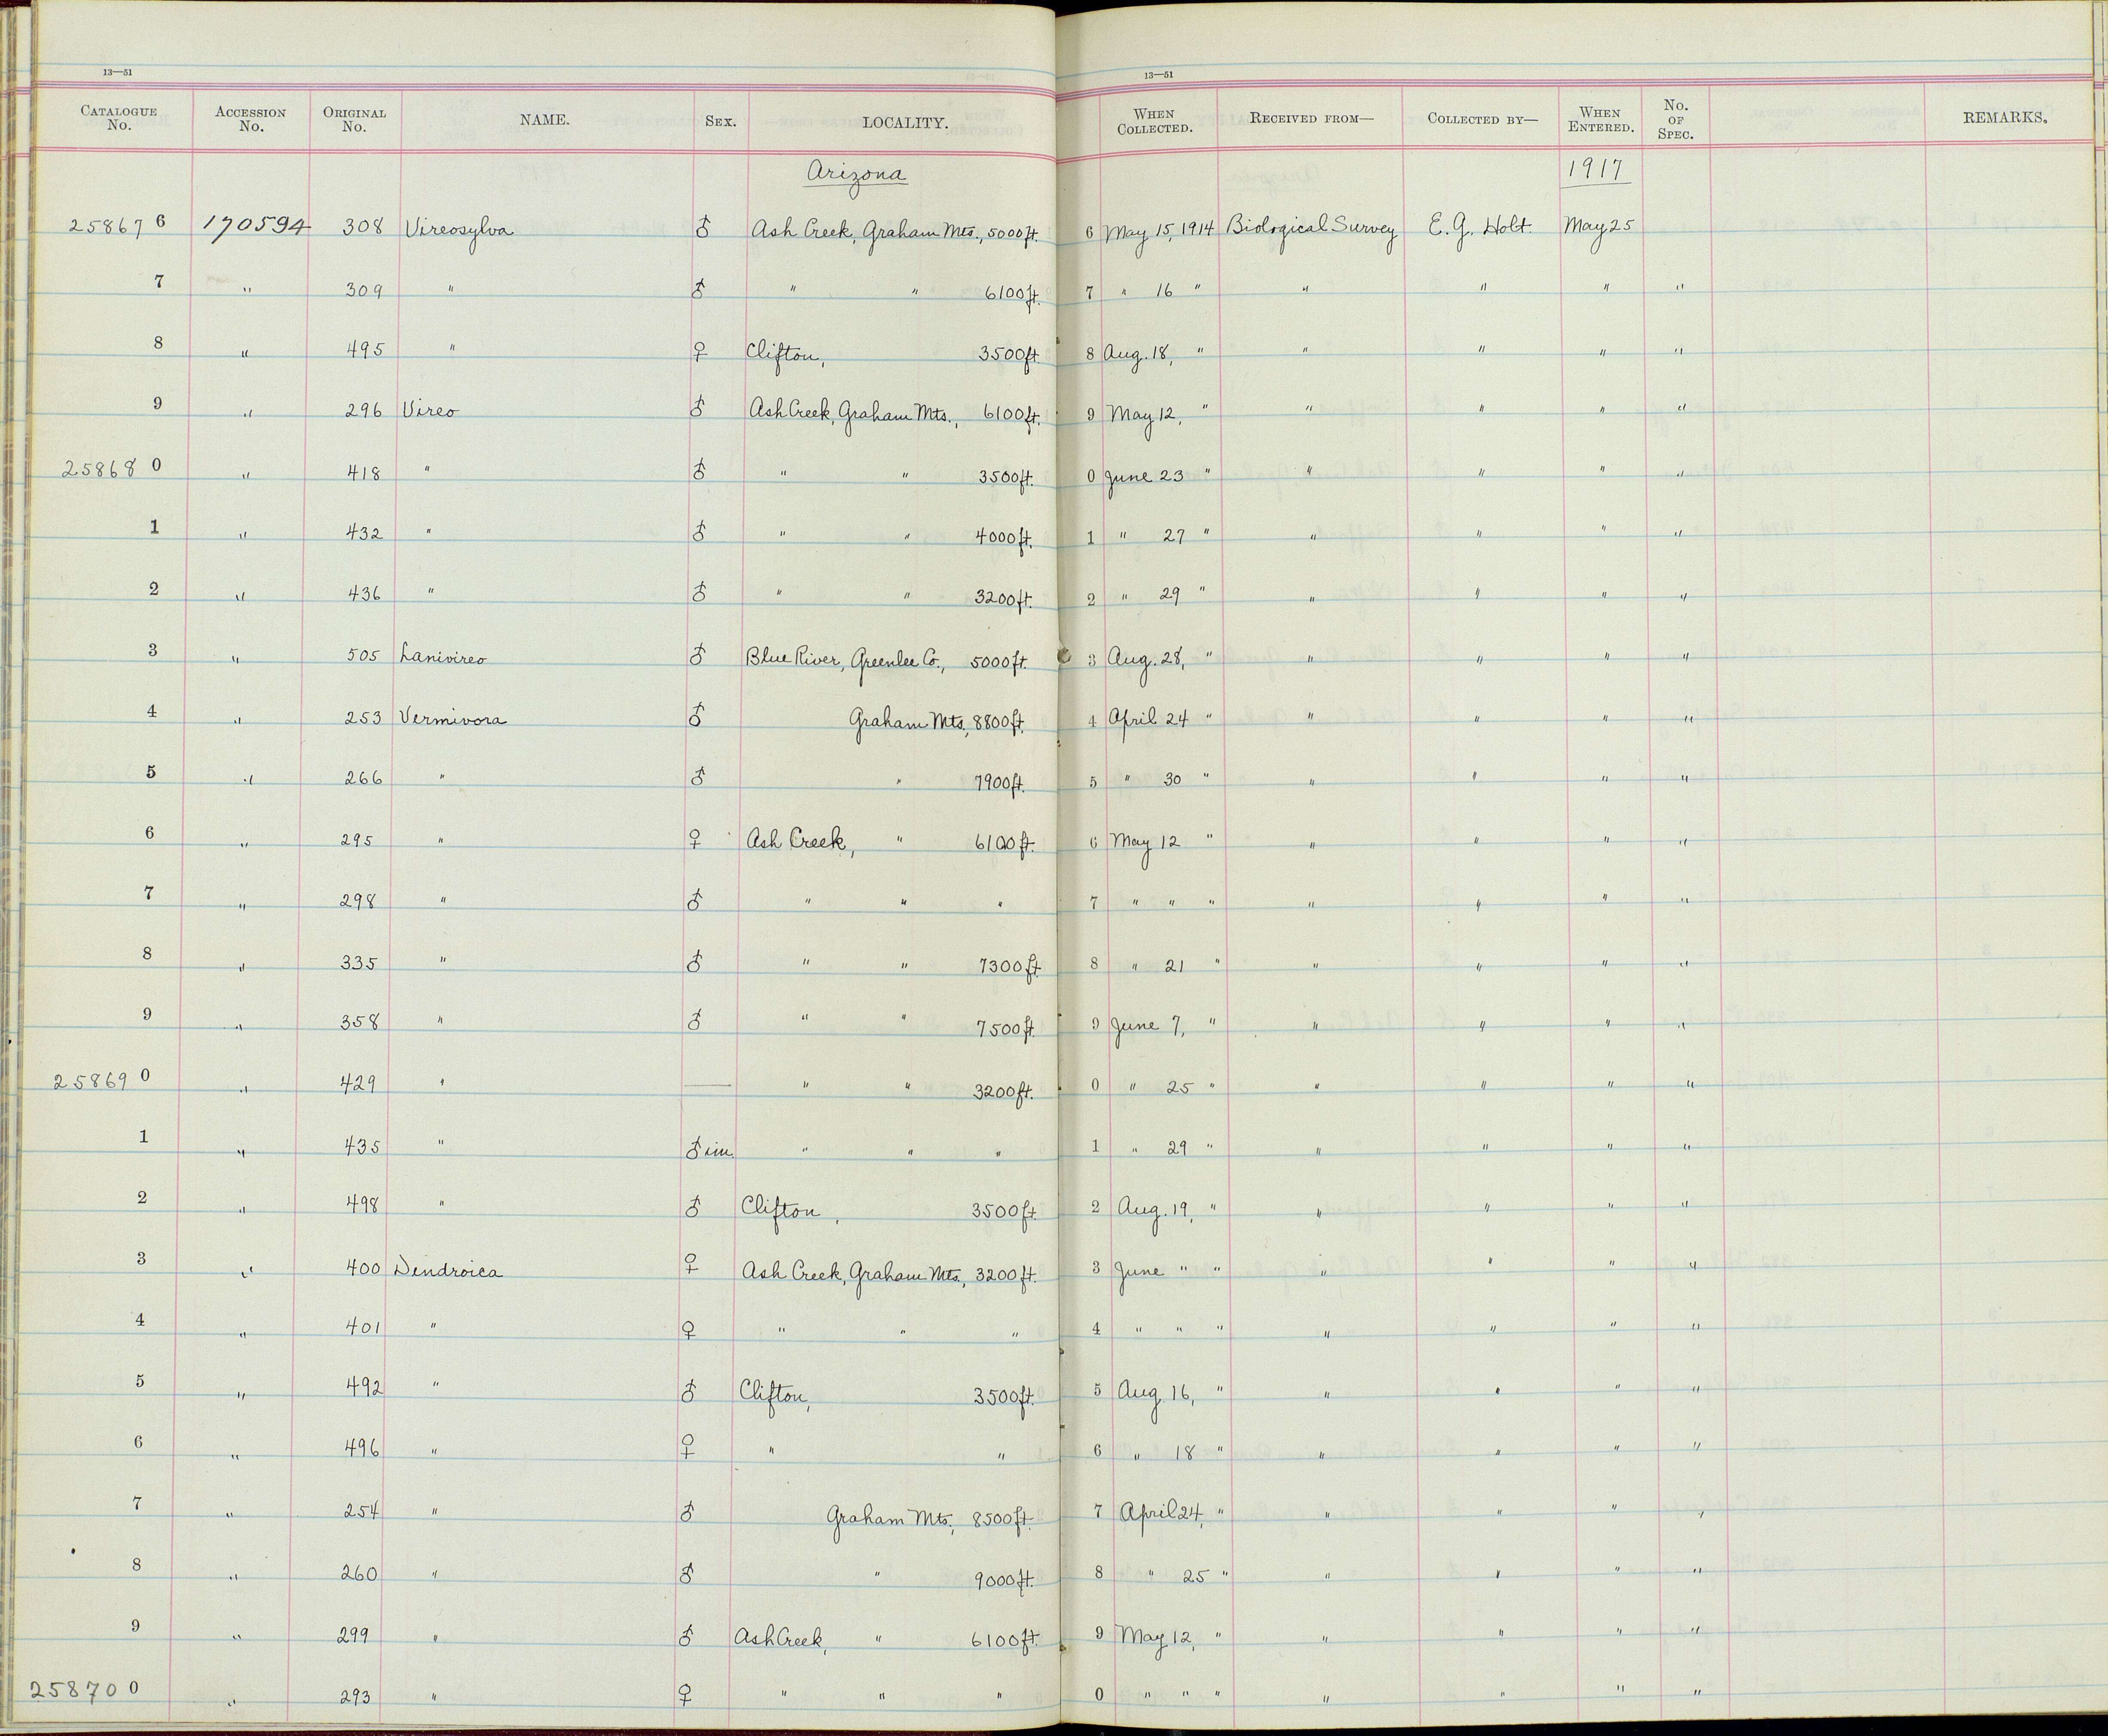 13—51 13—51
CATALOGUE No. ACCESSION No. ORIGINAL No. NAME. SEX. LOCALITY. WHEN COLLECTED. RECEIVED FROM— COLLECTED BY— WHEN ENTERED. No. OF SPEC. REMARKS.
Arizona 1917
25867 6 170594 308 Vireosylva ♂ Ash Creek, Graham Mts., 5000 ft. 6 May 15, 1914 Biological Survey E. G. Holt. May 25
7 " 309 " ♂ " " 6100 ft. 7 " 16 " " " " "
8 " 495 " ♀ Clifton, 3500 ft. 8 Aug. 18, " " " " "
9 " 296 Vireo ♂ Ash Creek, Graham Mts., 6100 ft. 9 May 12, " " " " "
25868 0 " 418 " ♂ " " 3500 ft. 0 June 23 " " " " "
1 " 432 " ♂ " " 4000 ft. 1 " 27 " " " " "
2 " 436 " ♂ " " 3200 ft. 2 " 29 " " " " "
3 " 505 Lanivireo ♂ Blue River, Greenlee Co., 5000 ft. 3 Aug. 28, " " " " "
4 " 253 Vermivora ♂ Graham Mts., 8800 ft. 4 April 24 " " " " "
5 " 266 " ♂ " 7900 ft. 5 " 30 " " " " "
6 " 295 " ♀ Ash Creek, " 6100 ft. 6 May 12 " " " " "
7 " 298 " ♂ " " " 7 " " " " " " "
8 " 335 " ♂ " " 7300 ft. 8 " 21 " " " " "
9 " 358 " ♂ " " 7500 ft. 9 June 7, " " " " "
25869 0 " 429 " — " " 3200 ft. 0 " 25 " " " " "
1 " 435 " ♂ im. " " " 1 " 29 " " " " "
2 " 498 " ♂ Clifton, 3500 ft. 2 Aug. 19, " " " " "
3 " 400 Dendroica ♀ Ash Creek, Graham Mts., 3200 ft. 3 June " " " " " "
4 " 401 " ♀ " " " 4 " " " " " " "
5 " 492 " ♂ Clifton, 3500 ft. 5 Aug. 16, " " " " "
6 " 496 " ♀ " " 6 " 18 " " " " "
7 " 254 " ♂ Graham Mts., 8500 ft. 7 April 24, " " " " "
8 " 260 " ♂ " 9000 ft. 8 " 25 " " " " "
9 " 299 " ♂ Ash Creek, " 6100 ft. 9 May 12, " " " " "
25870 0 " 293 " ♀ " " " 0 " " " " " " "